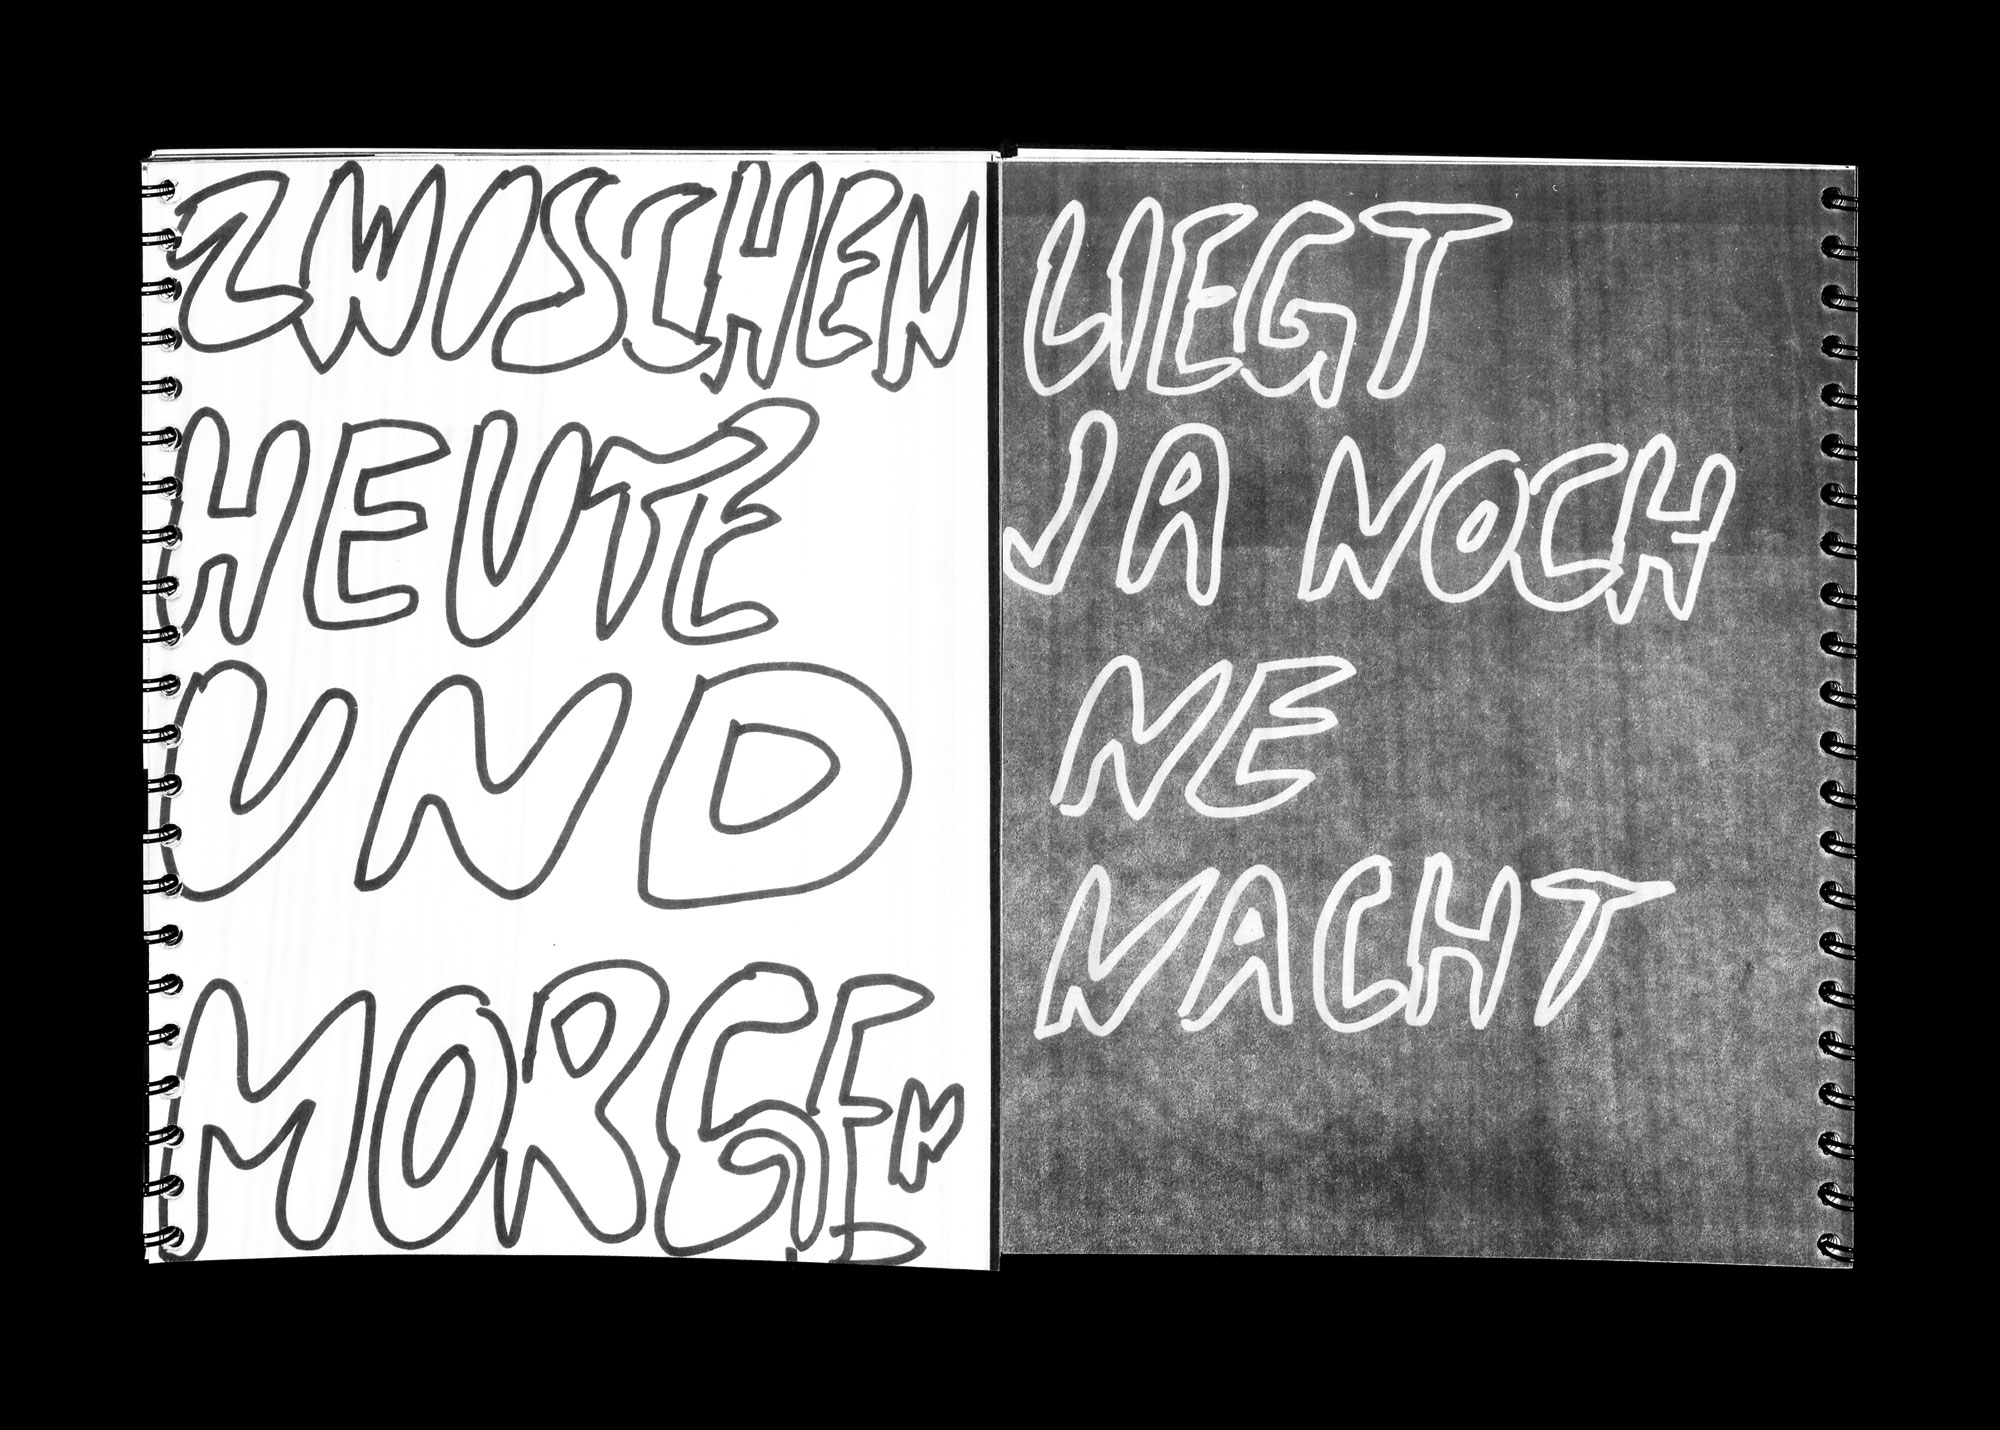 ZWISCHEN
HEUTE
UND
MORGEN
LIEGT
JA NOCH
NE
NACHT